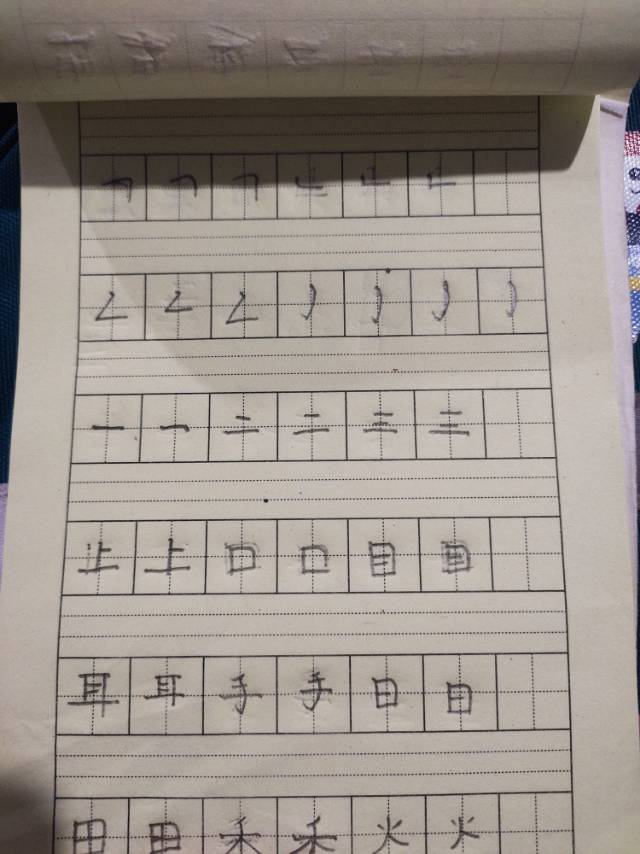 ㇕ ㇕ ㇕ ㇗ ㇗ ㇗
㇜ ㇜ ㇜ 丿 丿 丿 丿
一 一 二 二 三 三
上 上 口 口 目 目
耳 耳 手 手 日 日
田 田 禾 禾 火 火